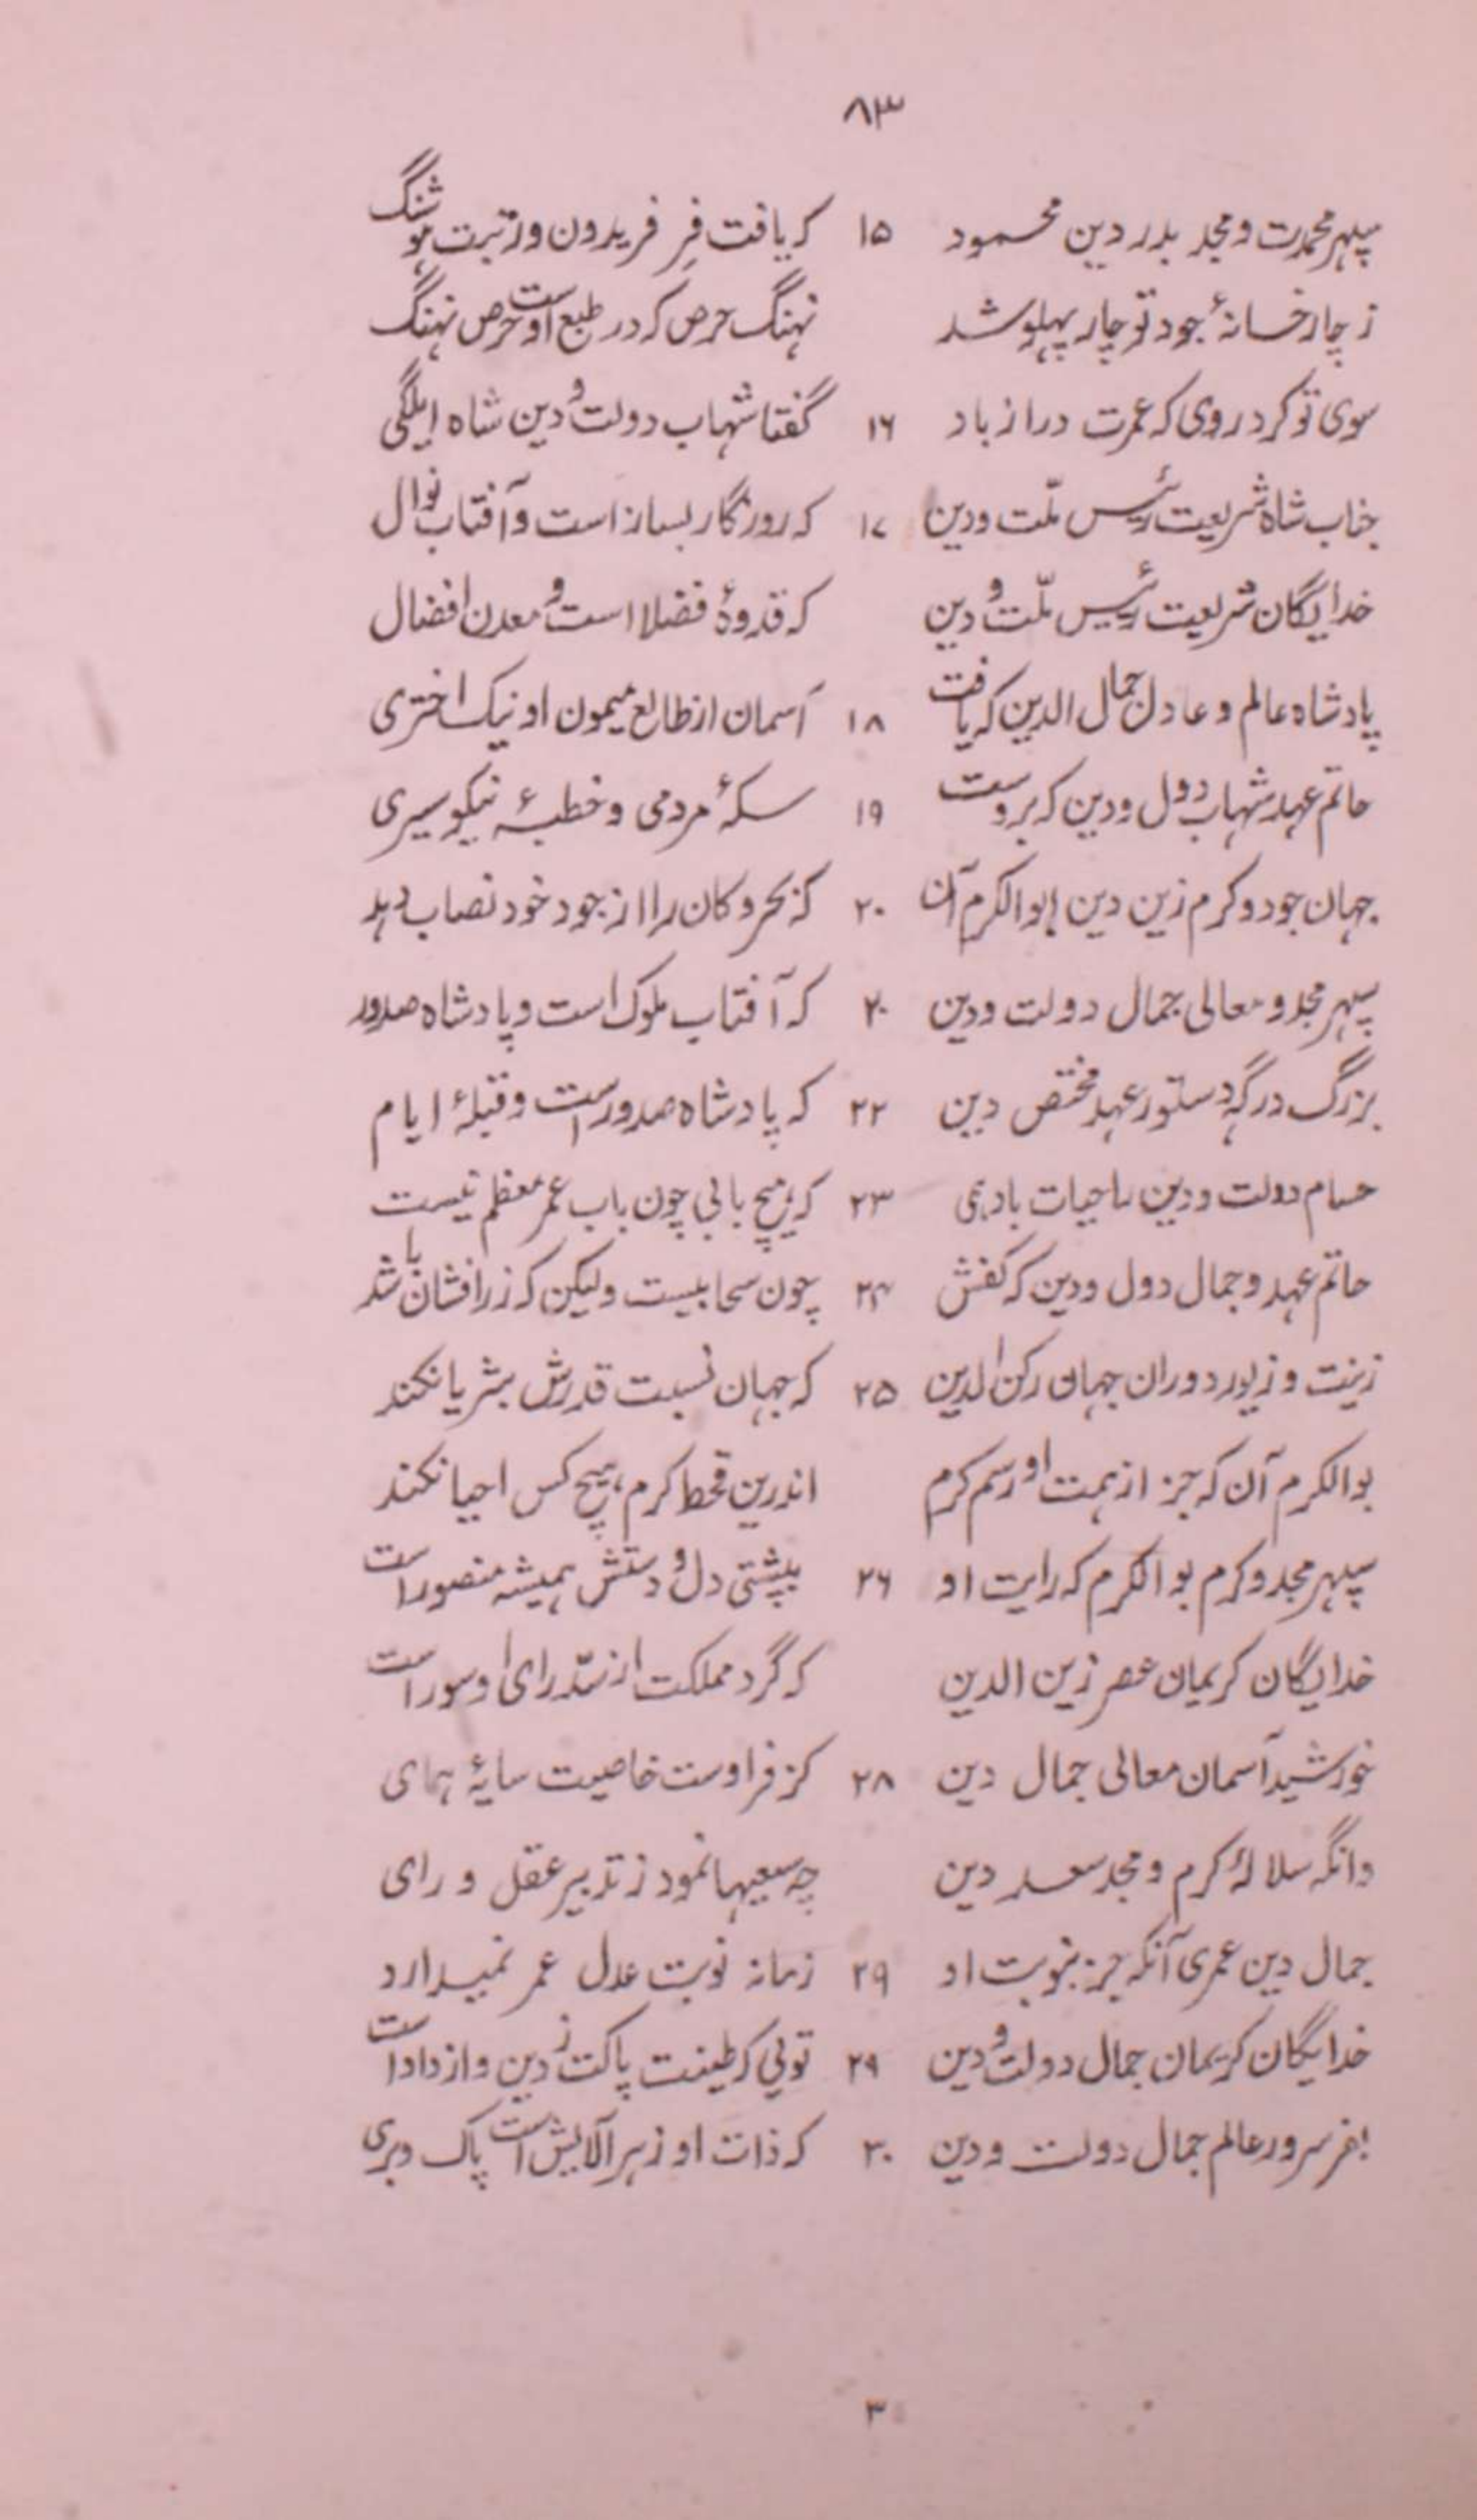 ۸۳
سپهر محمدت و مجد بدر دین محمود ۱۵ که یافت فرِ فریدون و رتبت هوشنگ
ز چار خسانهٔ جود تو چار پهلو شد نهنگ حرص که در طبع اوست حرص نهنگ
سوی تو کرد روی که عمرت دراز باد ۱۶ گفتا شهاب دولت و دین شاه ایلگی
جناب شاه شریعت رئیس ملّت و دین ۱۷ که روزگار بساز است و آفتاب نوال
خدایگان شریعت رئیس ملّت و دین که قدوهٔ فضلا است و معدن افضال
پادشاه عالم و عادل جمال الدین که یافت ۱۸ آسمان از طالع میمون او نیک اختری
حاتم عهد شهاب دول و دین که بروست ۱۹ سکهٔ مردمی و خطبهٔ نیکو سیری
جهان جود و کرم زین دین ابو الکرم آن ۲۰ که بحر و کان را از جود خود نصاب دهد
سپهر مجد و معالی جمال دولت و دین ۲۰ که آفتاب ملوک است و پادشاه صدور
بزرگ درگه دستور عهد مختص دین ۲۲ که پادشاه صدور است و قبلهٔ ایام
حسام دولت و دین با حیات بادهی ۲۳ که هیچ بابی چون باب عمر معظم نیست
حاتم عهد و جمال دول و دین که کفش ۲۴ چون سحابیست ولیکن که زر افشان باشد
زینت و زیور دوران جهان رکن الدین ۲۵ که جهان نسبت قدرش بثریا نکند
بو الکرم آن که جز از همت او رسم کرم اندرین قحط کرم هیچ کس احیا نکند
سپهر مجد و کرم بو الکرم که رایت او ۲۶ بپشتی دل و دستش همیشه منصور است
خدایگان کریمان عصر زین الدین که گرد مملکت از سدّ رای او سور است
خورشید آسمان معالی جمال دین ۲۸ کز فر اوست خاصیت سایهٔ همای
وانگه سلالهٔ کرم و مجد سعد دین چه سعیها نمود ز تدبیر عقل و رای
جمال دین عمری آنکه جز بنوبت او ۲۹ زمانه نوبت عدل عمر نمیدارد
خدایگان کریمان جمال دولت و دین ۲۹ تویی که طینت پاکت ز دین و از داد است
بفر سرور عالم جمال دولت و دین ۳۰ که ذات او ز هر آلایش است پاک و بری
۳